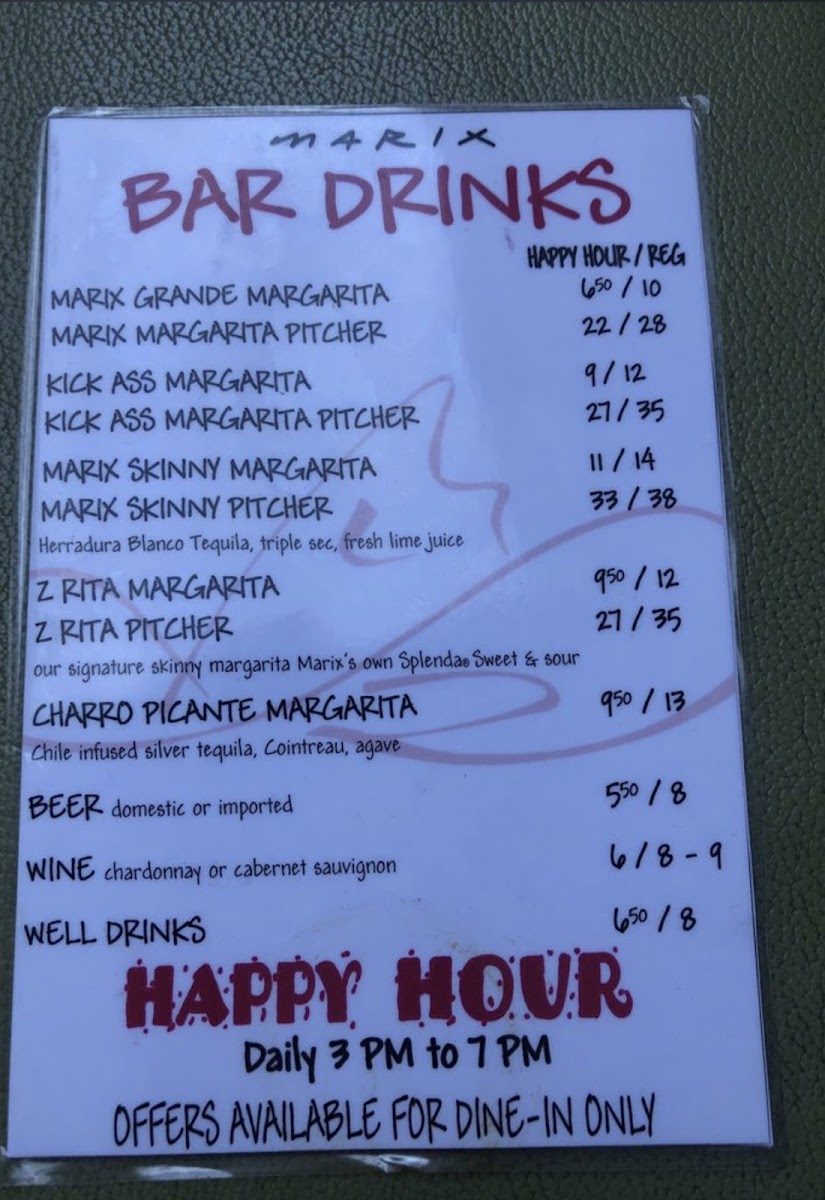 MARIX
BAR DRINKS
HAPPY HOUR / REG
MARIX GRANDE MARGARITA 6⁵⁰ / 10
MARIX MARGARITA PITCHER 22 / 28
KICK ASS MARGARITA 9 / 12
KICK ASS MARGARITA PITCHER 27 / 35
MARIX SKINNY MARGARITA 11 / 14
MARIX SKINNY PITCHER 33 / 38
Herradura Blanco Tequila, triple sec, fresh lime juice
Z RITA MARGARITA 9⁵⁰ / 12
Z RITA PITCHER 27 / 35
our signature skinny margarita Marix's own Splenda® Sweet & sour
CHARRO PICANTE MARGARITA 9⁵⁰ / 13
Chile infused silver tequila, Cointreau, agave
BEER domestic or imported 5⁵⁰ / 8
WINE chardonnay or cabernet sauvignon 6 / 8 - 9
WELL DRINKS 6⁵⁰ / 8
HAPPY HOUR
Daily 3 PM to 7 PM
OFFERS AVAILABLE FOR DINE-IN ONLY